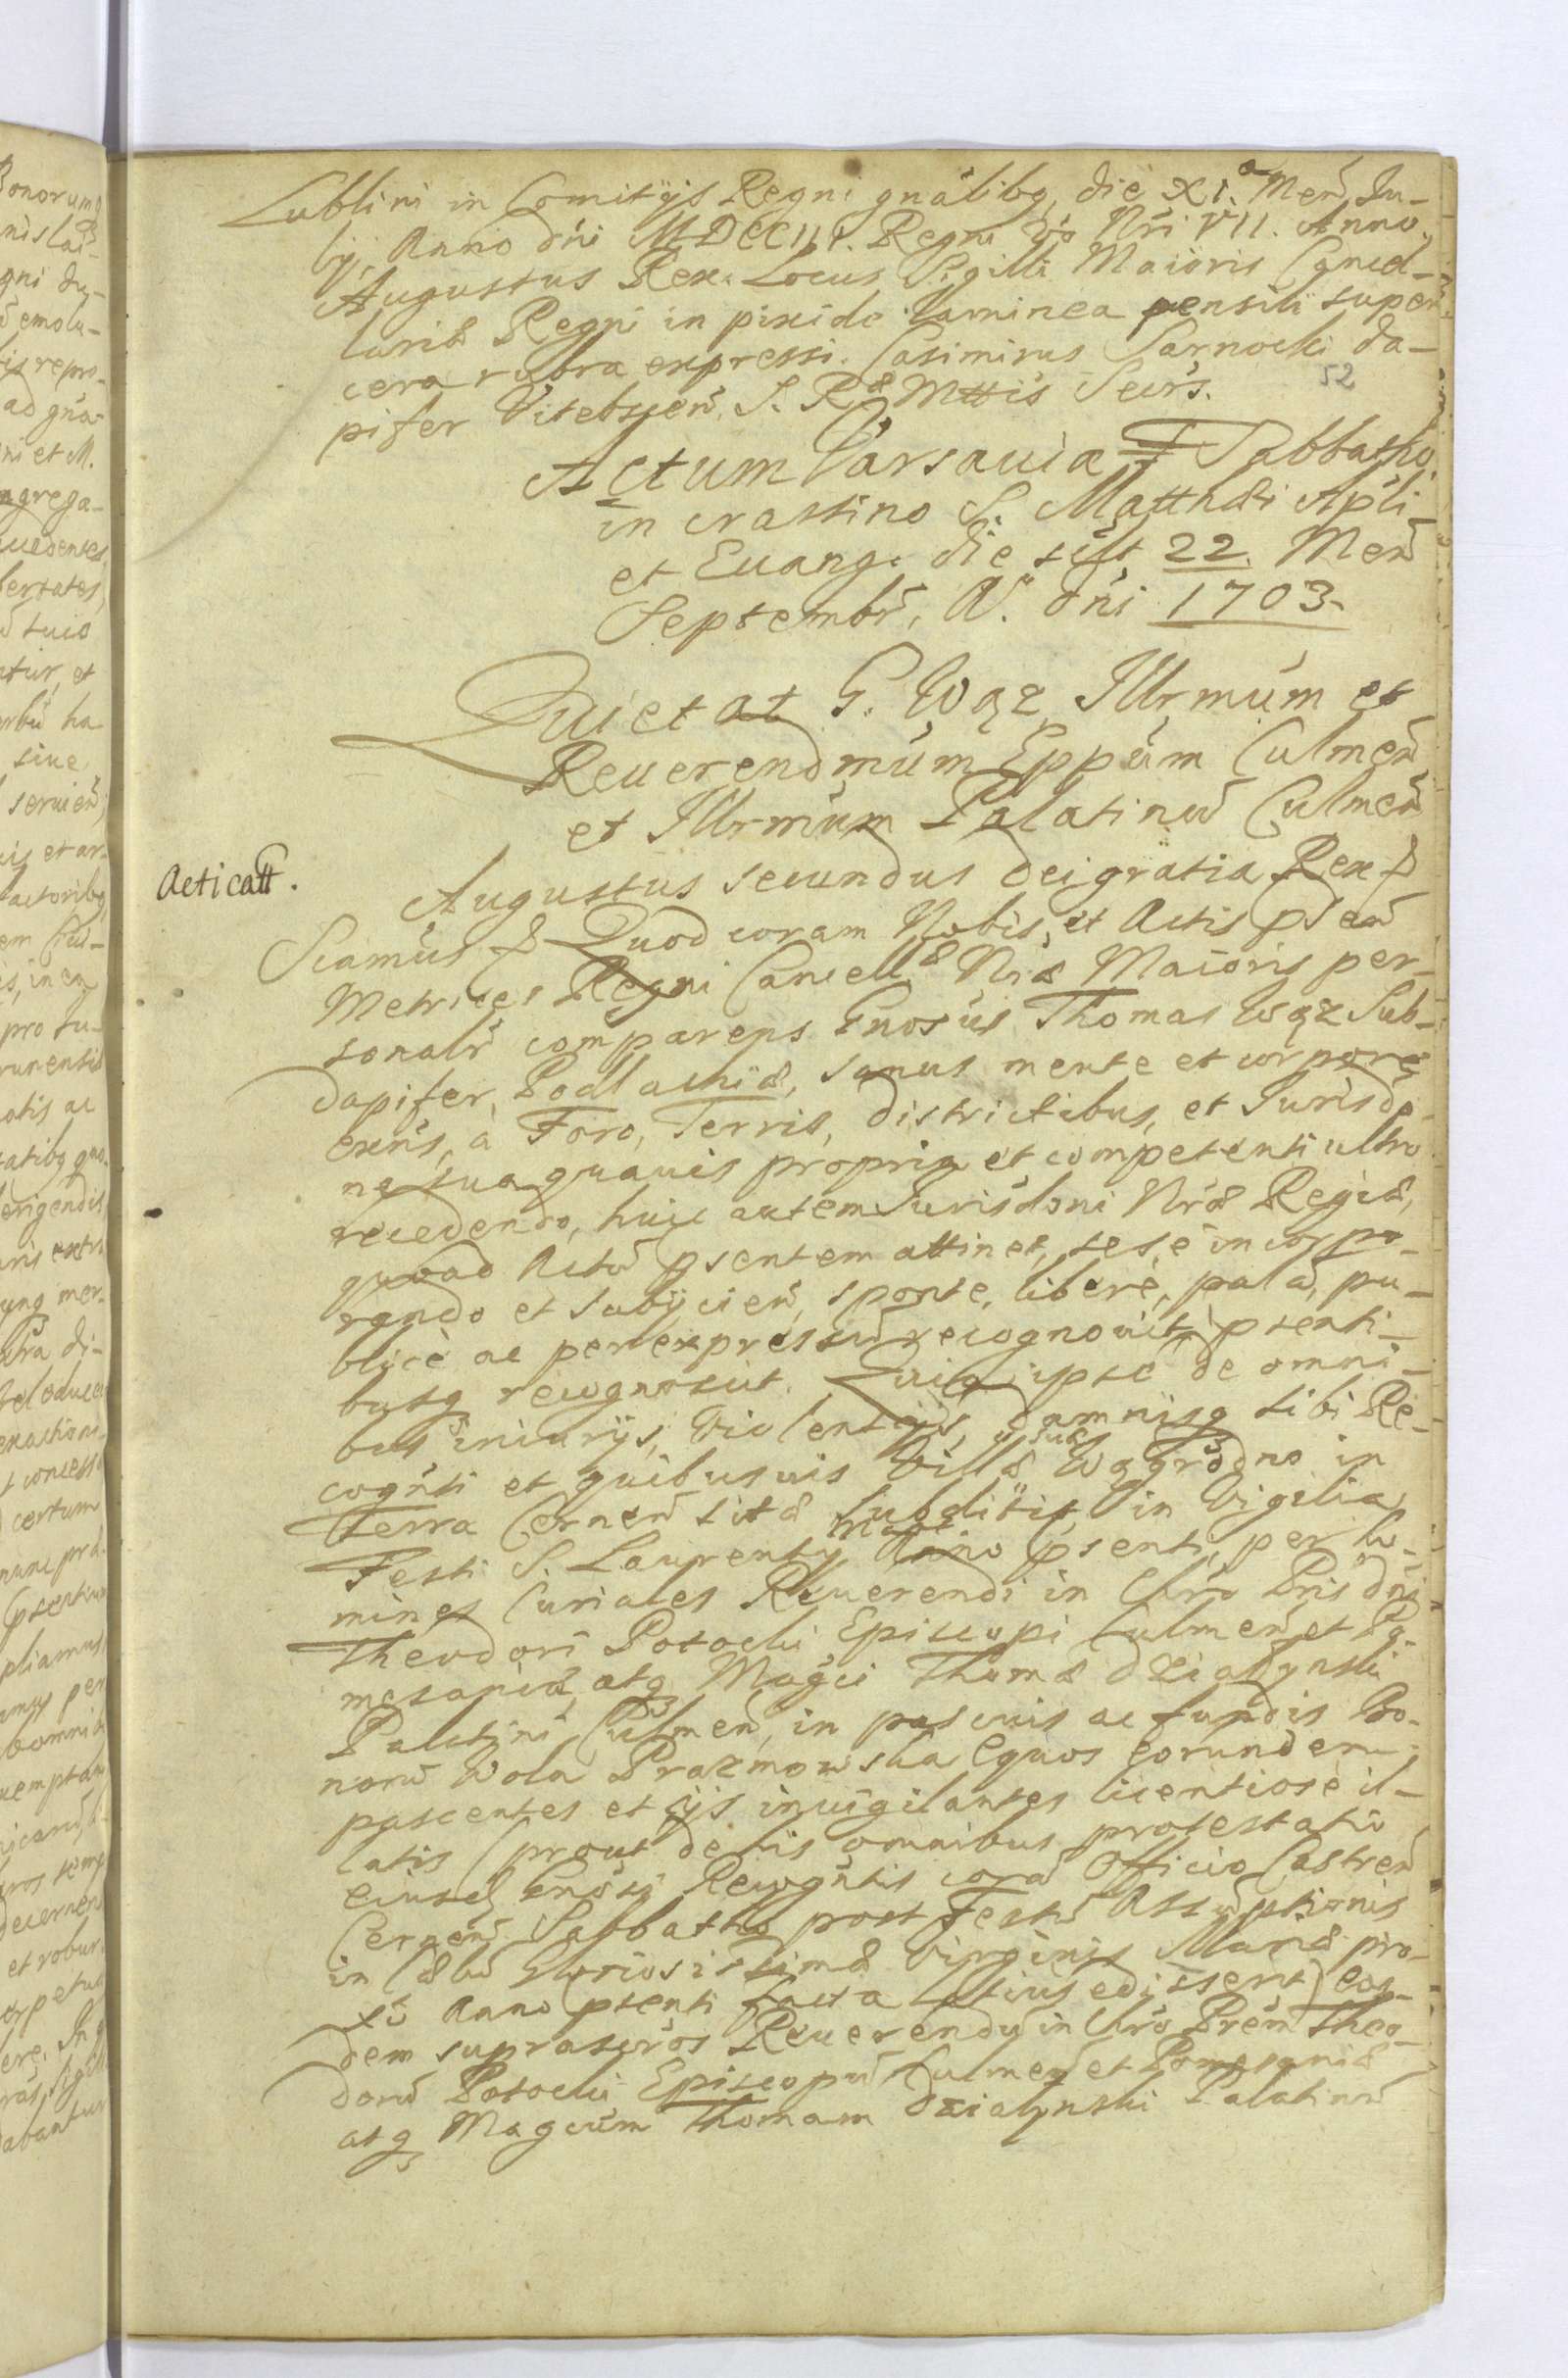 Lublini in Comitijs Regni gnalibq, die XI.a Men Ju-
lij, Anno dni MDCCIII. Regni vo Nri VII. Anno.
Augustus Rex. Locus Sigilli Maioris Cancel-
lariæ Regni in pixide laminea pensili super
cera rubra expressi. Casimirus Sarnocki da-
pifer Vitebscen, S. Ræ Mttis Secrs.
52
Actum Varsaviæ Sabbatho
in crastino S. Matthæi Apli
et Euang. die scilt 22. Men
Septembr, A. dni 1703.
Quietat G. Wąż Illrmum et
Reuerendmum Eppum Culmen
et Illrmum Palatinu Culmen
Acticatt.
Augustus secundus dei gratia Rex
Sciamus Quod coram Nobis, et Actis psen
Metrices Regni Cancellæ Nræ Maioris per-
sonalr comparens Gnosus Thomas Wąż Sub-
dapifer Podlachiæ, sanus mente et corpore
exns, à Foro, Terris, districtibus, et Jurisdo-
ne sua quavis propria et competenti ultro
recedendo, huic autem Jurisdoni Nræ Regiæ,
quoad Actu psentem attinet, sese incorpo-
rando et subijcien, sponte, liberè, pala, pu-
blicè ac per expressu recognovit psenti-
busq recognoscit. Quia ipse de omni-
bus iniurijs, violentijs, damnisq sibi Re-
cognti et quibusuis Villæ suæ Wągrodno in
Terra Cernen sitæ subditis, in Vigilia
Festi S. Laurentij Anno psenti, per ho-
mines Curiales Reuerendi in Chro Pris dni
Theodori Potocki Episcopi Culmen et Po-
mesaniæ, atq Magci Thomæ działynski
Palatini Culmen, in pascuis ac fundis Bo-
noru Wola Prazmowska Equos eorundem
pascentes et ijs invigilantes licentiosè il-
latis (prout de his omnibus protestatio
eiusd Gnosi Recogntis cora Officio Castren
Cernen Sabbatho post Festu Assuptionis
in Cælu Gloriosissimæ Virginis Mariæ pro-
xo Anno psenti facta latius edisserit) eos-
dem suprascros Reuerendu in Chro Prem Theo-
doru Potocki Episcopu Culmen et Pomesaniæ
atq Magcum Thomam działynski Palatinu